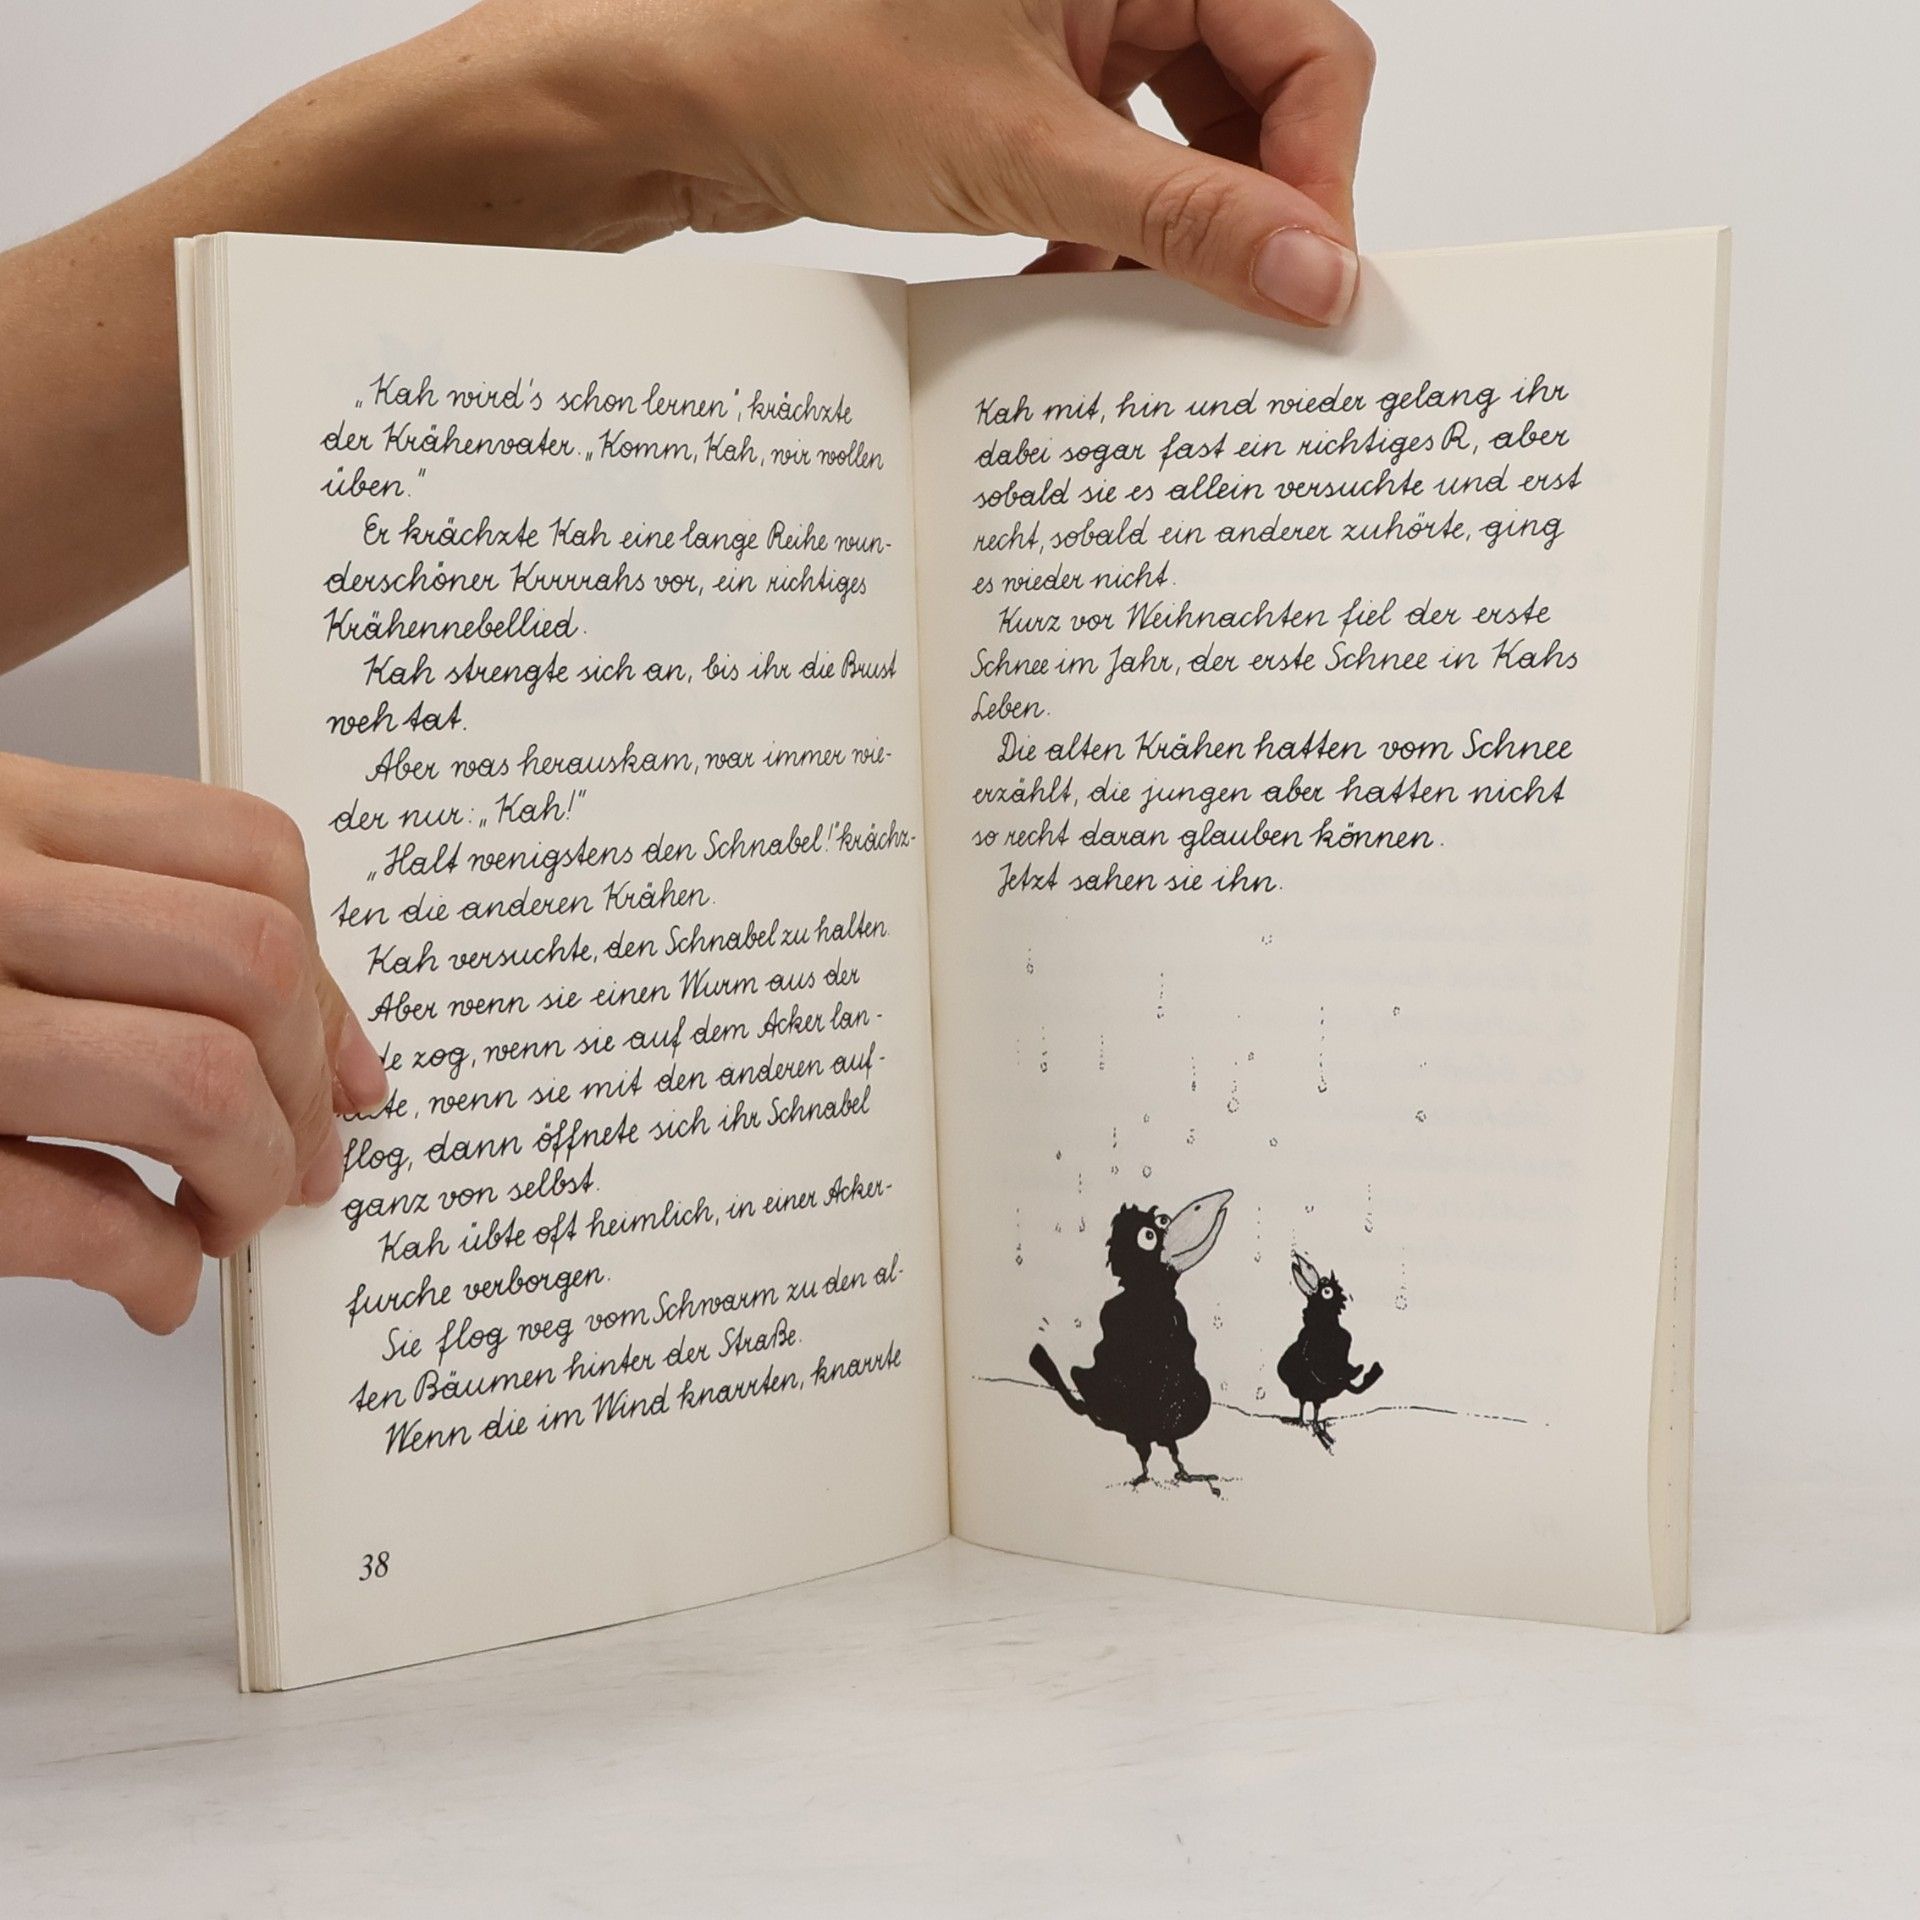 „Kah wird's schon lernen", krächzte
der Krähenvater. „Komm, Kah, wir wollen
üben."
Er krächzte Kah eine lange Reihe wun-
derschöner Krrrrahs vor, ein richtiges
Krähennebellied.
Kah strengte sich an, bis ihr die Brust
weh tat.
Aber was herauskam, war immer wie-
der nur: „Kah!"
„Halt wenigstens den Schnabel!" krächz-
ten die anderen Krähen.
Kah versuchte, den Schnabel zu halten.
Aber wenn sie einen Wurm aus der
de zog, wenn sie auf dem Acker lan-
te, wenn sie mit den anderen auf-
flog, dann öffnete sich ihr Schnabel
ganz von selbst.
Kah übte oft heimlich, in einer Acker-
furche verborgen.
Sie flog weg vom Schwarm zu den al-
ten Bäumen hinter der Straße.
Wenn die im Wind knarrten, knarrte
38
Kah mit, hin und wieder gelang ihr
dabei sogar fast ein richtiges R, aber
sobald sie es allein versuchte und erst
recht, sobald ein anderer zuhörte, ging
es wieder nicht.
Kurz vor Weihnachten fiel der erste
Schnee im Jahr, der erste Schnee in Kahs
Leben.
Die alten Krähen hatten vom Schnee
erzählt, die jungen aber hatten nicht
so recht daran glauben können.
Jetzt sahen sie ihn.